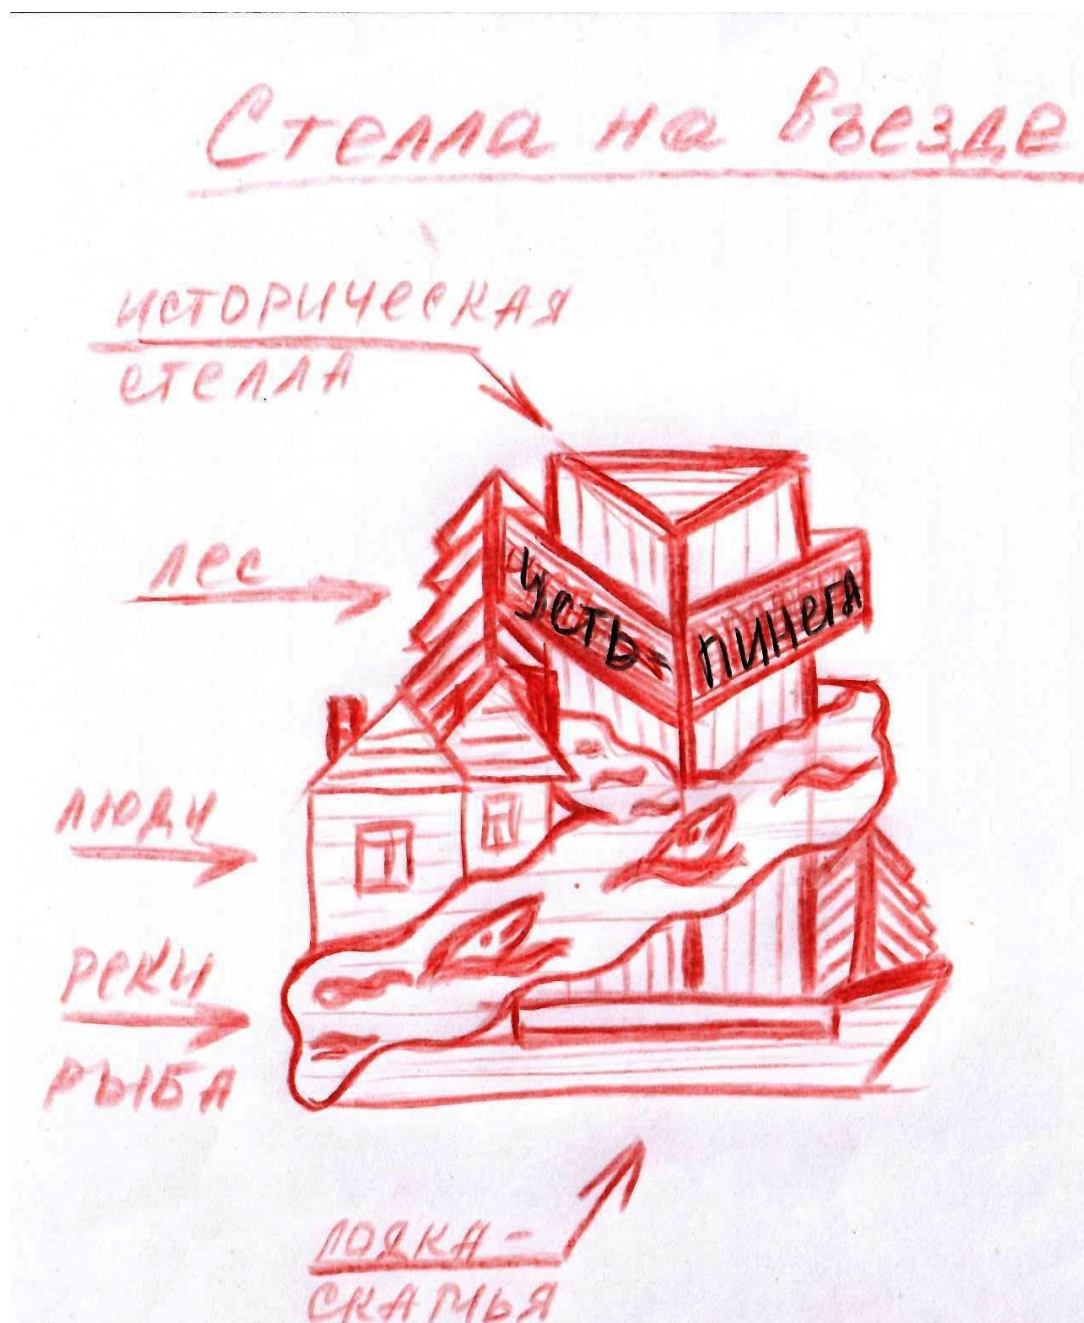 Стелла на въезде
ИСТОРИЧЕСКАЯ
СТЕЛЛА
ЛЕС
УСТЬ-
ПИНЕГА
ЛЮДИ
РЕКИ
РЫБА
ЛОДКА-
СКАМЬЯ